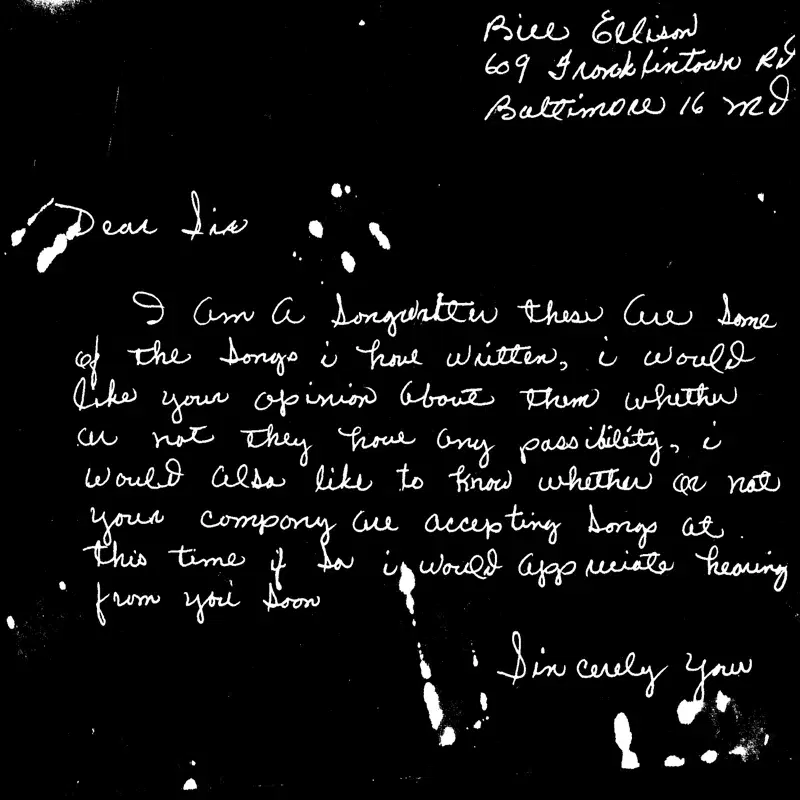 Bill Ellison
609 Franklintown Rd
Baltimore 16 Md
Dear Sir
I am a songwritter these are some
of the songs i have written, i would
like your opinion about them whether
or not they have any passibility, i
would also like to know whether or not
your company are accepting songs at
this time if so i would appreciate hearing
from you soon
Sincerely Your